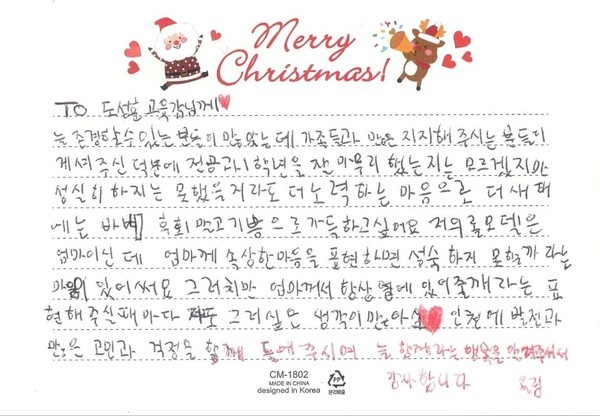 Merry
Christmas!
TO 도성훈 교육감님께
늘 존경할수있는 분들이 많았는데 가족들과 많은 지지해 주시는 분들이
계셔주신 덕분에 전공과1학년을 잘 마무리 했는지는 모르겠지만
성실히 하지는 못했을지라도 더 노력하는 마음으로 더 새해
에는 바 후회 말고 기쁨으로 가득하고싶어요 저의 롤모델은
엄마이신데 엄마께 속상한마음을 표현하면 성숙하지 못할까 라는
마음이 있어써요 그러치만 엄마께서 항상 곁에 있어줄깨라는 표
현해주실때마다 그러실은 생각이 많아 인천에 발전과
많은 고민과 걱정을 함께 들며 주시며 늘 함께라는 행복을 알려주셔서
감사합니다
CM-1802
MADE IN CHINA
designed in Korea
분리배출